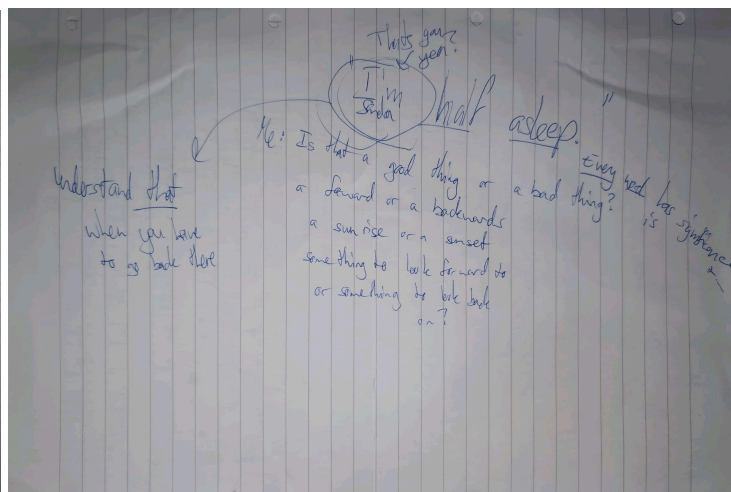 That's gay?
yeh?
"I'm
half asleep."
Me: Is that a good thing or a bad thing?
a forward or a backwards
a sunrise or a sunset
something to look forward to
or something to look back
on?
Every has
is
understand that
when you have
to go back there